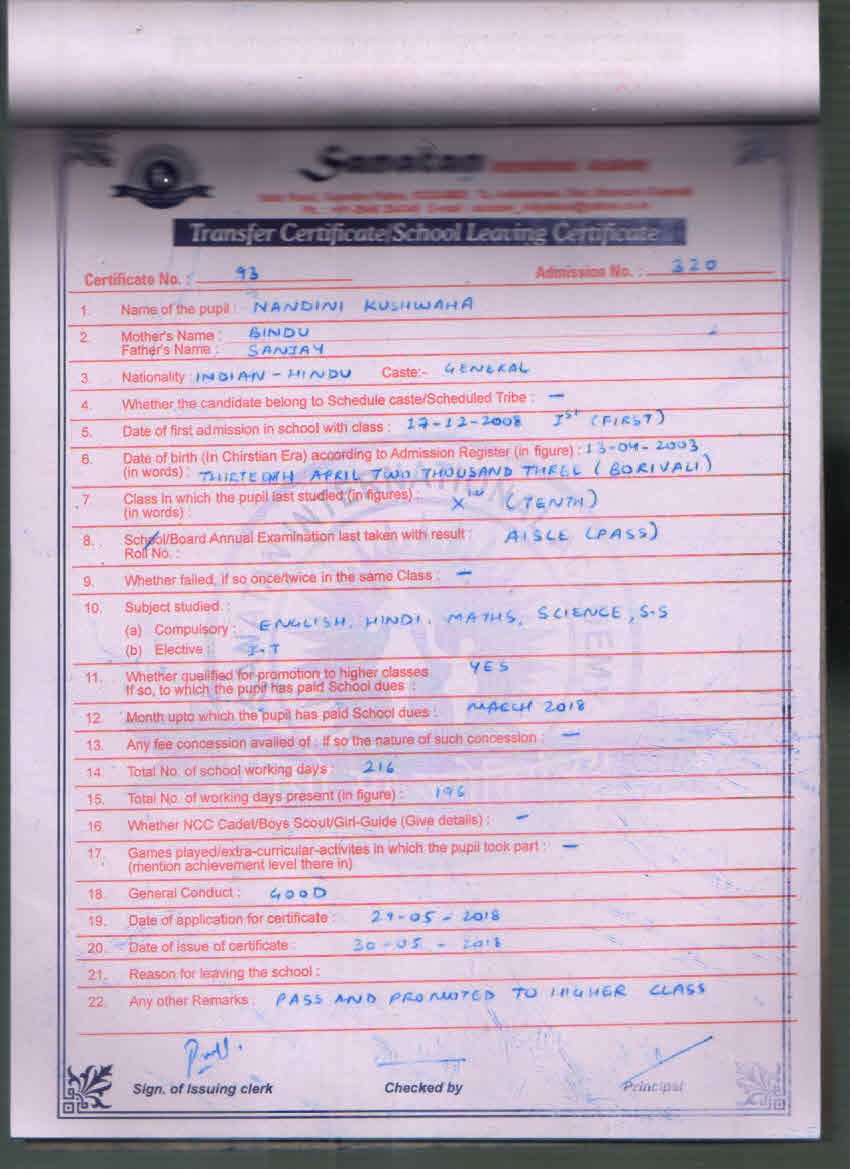 Sanatan
Transfer Certificate/School Leaving Certificate
Certificate No. : 93 Admission No. : 320
1. Name of the pupil : NANDINI KUSHWAHA
2. Mother's Name : BINDU
Father's Name : SANJAY
3. Nationality : INDIAN - HINDU Caste:- GENERAL
4. Whether the candidate belong to Schedule caste/Scheduled Tribe : —
5. Date of first admission in school with class : 17-12-2008 Ist (FIRST)
6. Date of birth (In Chirstian Era) according to Admission Register (in figure) : 13-04-2003
(in words) : THIRTEENTH APRIL TWO THOUSAND THREE (BORIVALI)
7. Class in which the pupil last studied (in figures) : Xth (TENTH)
(in words) :
8. School/Board Annual Examination last taken with result : AISLE (PASS)
Roll No. :
9. Whether failed, if so once/twice in the same Class : —
10. Subject studied :
(a) Compulsory : ENGLISH, HINDI, MATHS, SCIENCE, S.S
(b) Elective : I.T
11. Whether qualified for promotion to higher classes YES
If so, to which the pupil has paid School dues :
12. Month upto which the pupil has paid School dues : MARCH 2018
13. Any fee concession availed of : If so the nature of such concession : —
14. Total No. of school working days : 216
15. Total No. of working days present (in figure) : 196
16. Whether NCC Cadet/Boys Scout/Girl-Guide (Give details) : —
17. Games played/extra-curricular-activites in which the pupil took part : —
(mention achievement level there in)
18. General Conduct : GOOD
19. Date of application for certificate : 29-05-2018
20. Date of issue of certificate : 30-05-2018
21. Reason for leaving the school :
22. Any other Remarks : PASS AND PROMOTED TO HIGHER CLASS
Sign. of Issuing clerk Checked by Principal